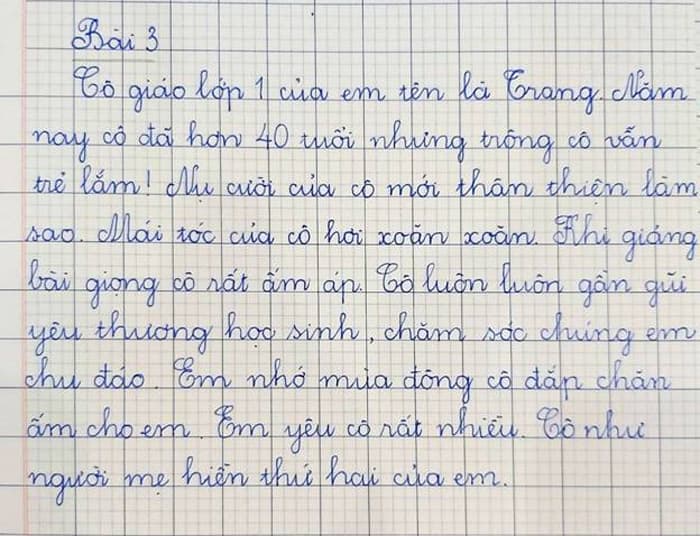 Bài 3
Cô giáo lớp 1 của em tên là Trang. Năm
nay cô đã hơn 40 tuổi nhưng trông cô vẫn
trẻ lắm! Nụ cười của cô mới thân thiện làm
sao. Mái tóc của cô hơi xoăn xoăn. Khi giảng
bài giọng cô rất ấm áp. Cô luôn luôn gần gũi
yêu thương học sinh, chăm sóc chúng em
chu đáo. Em nhớ mùa đông cô đắp chăn
ấm cho em. Em yêu cô rất nhiều. Cô như
người mẹ hiền thứ hai của em.